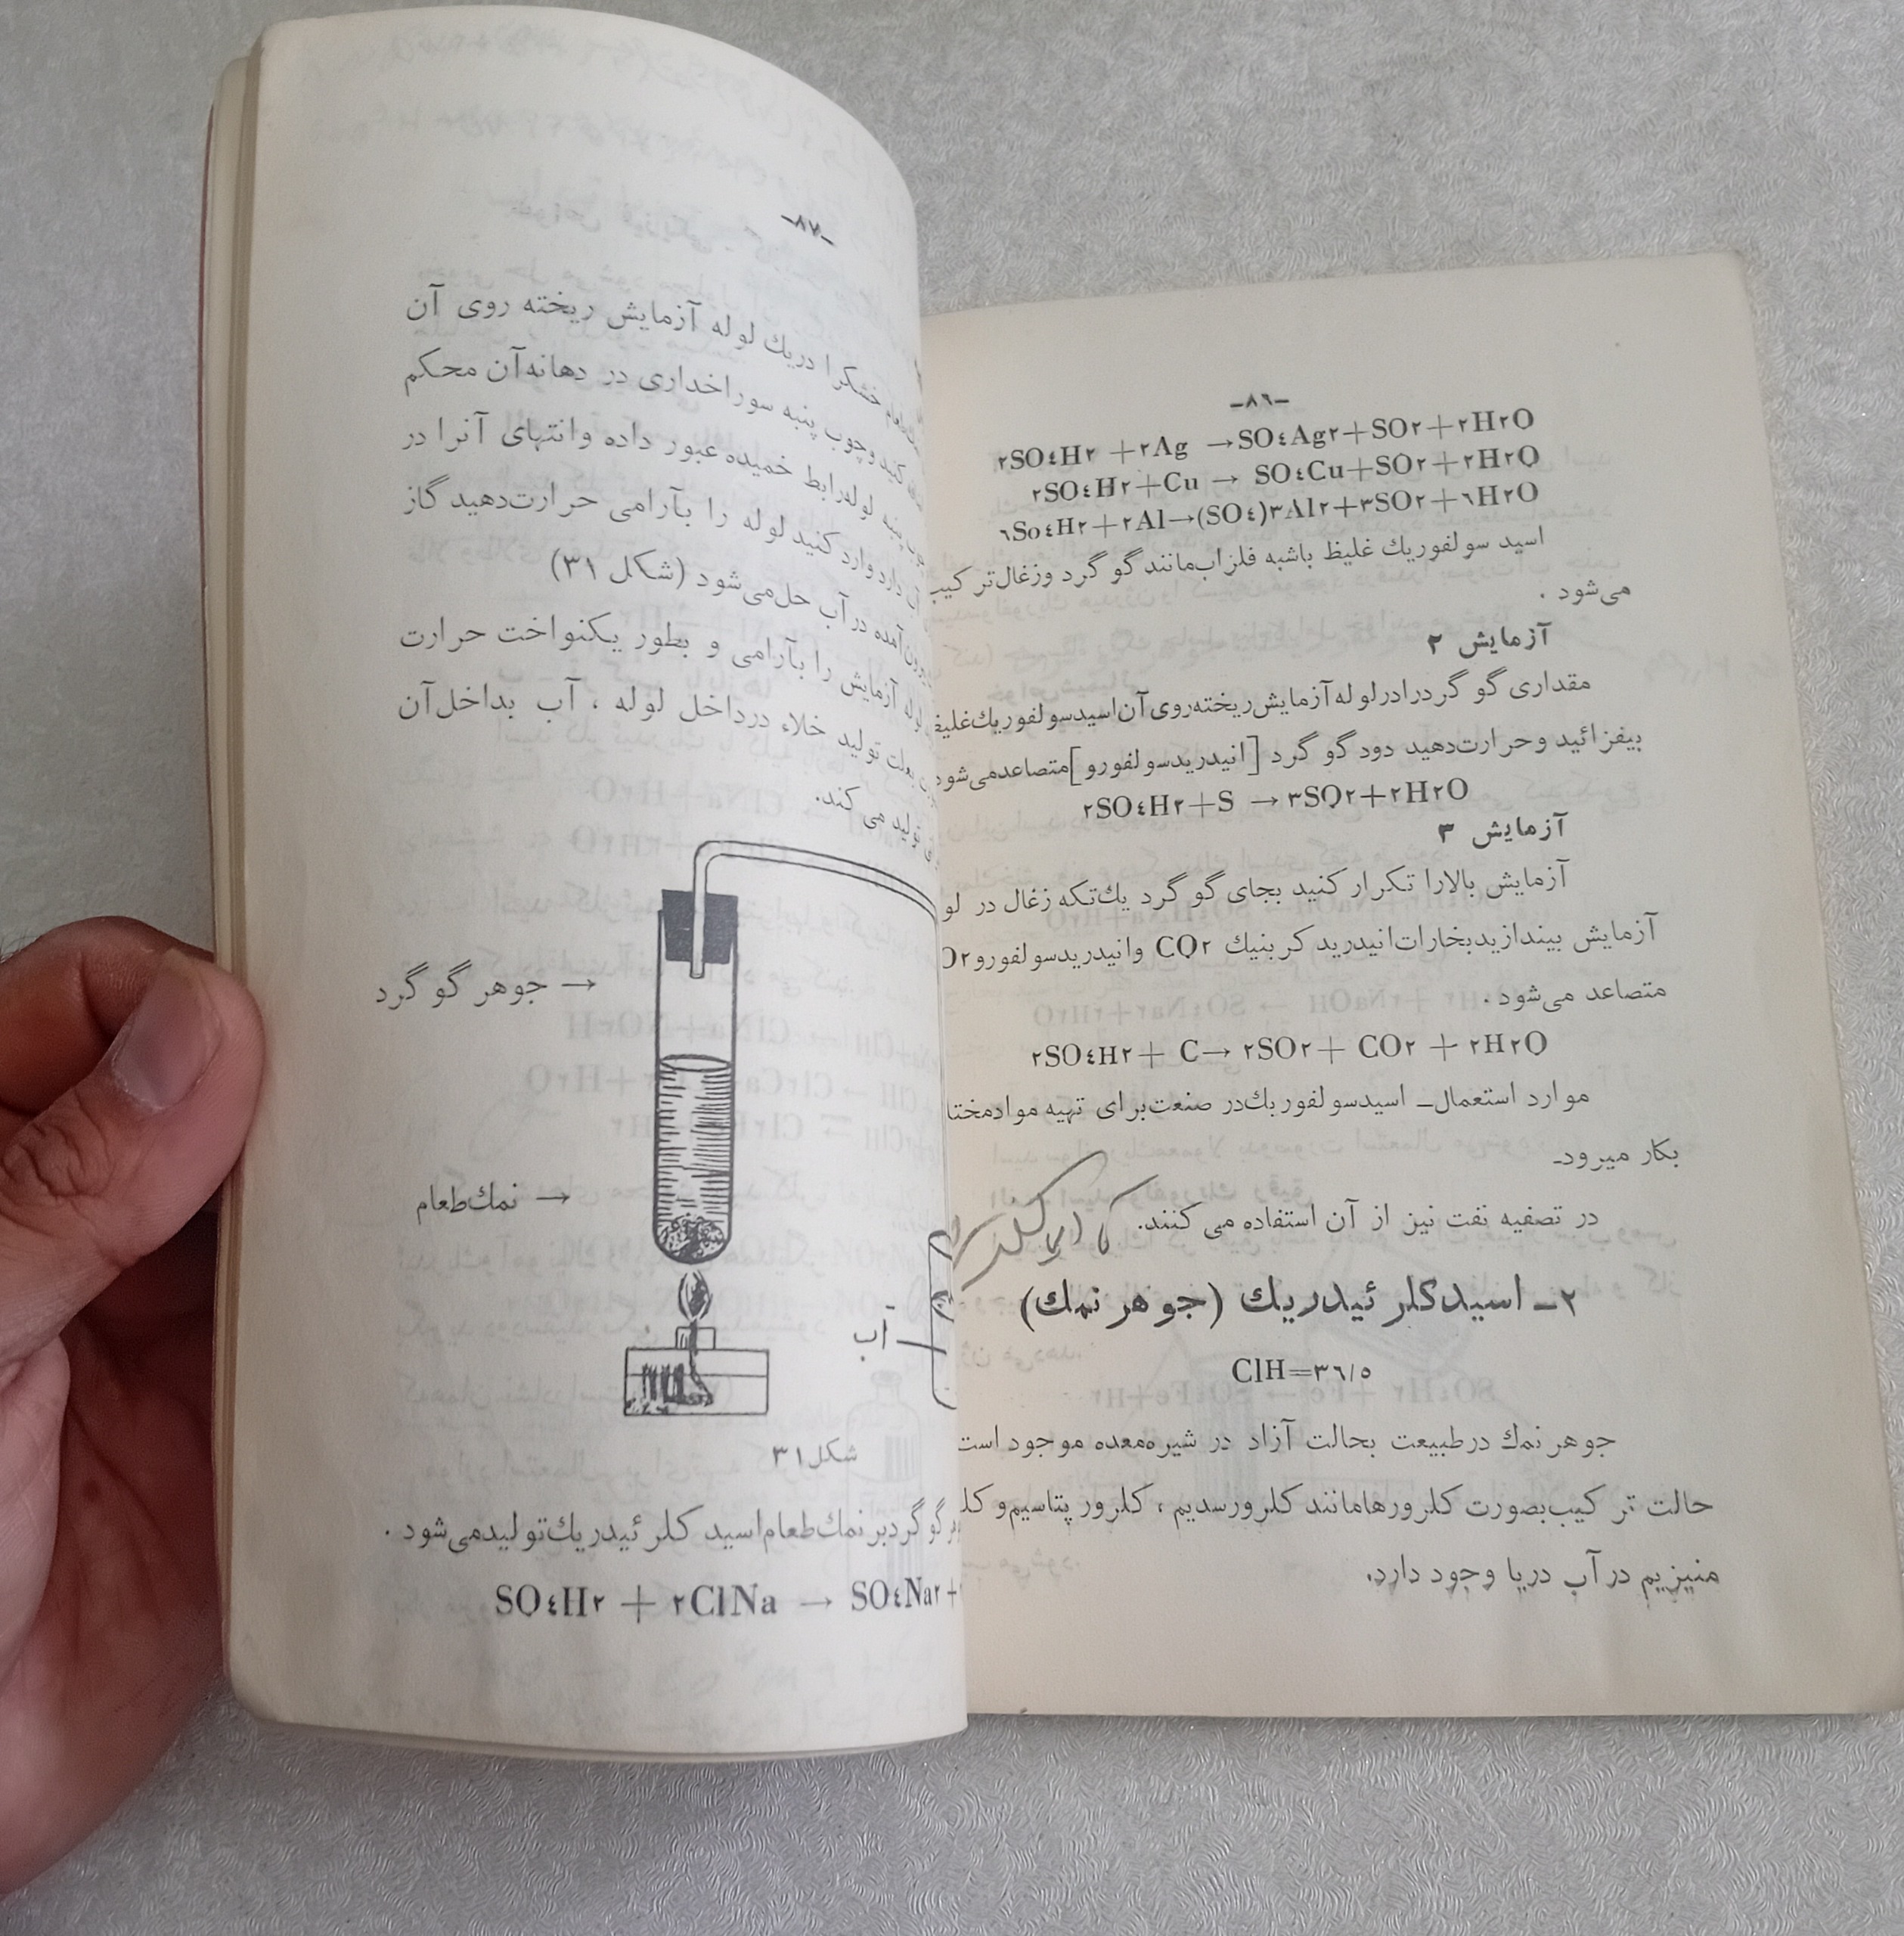 -٨٦-
٢SO٤H٢ +٢Ag →SO٤Ag٢+SO٢+٢H٢O
٢SO٤H٢+Cu → SO٤Cu+SO٢+٢H٢O
٦So٤H٢+٢Al→(SO٤)٣Al٢+٣SO٢+٦H٢O
اسید سولفوریك غلیظ باشبه فلزاب‌مانند گو گرد وزغال‌تر کیب
می‌شود .
آزمایش ۲
مقداری گو گردرادرلوله‌آزمایش‌ریخته‌روی‌آن‌اسیدسولفوریك‌غلیظ
بیفزائید وحرارت‌دهید دود گو گرد [انیدریدسولفورو]متصاعدمی‌شود
٢SO٤H٢+S → ٣SO٢+٢H٢O
آزمایش ۳
آزمایش بالارا تکرار کنید بجای گو گرد یك‌تکه زغال در لو
آزمایش بیندازیدبخارات‌انیدرید کربنیك CO٢ وانیدریدسولفوروO٢
متصاعد می‌شود .
٢SO٤H٢+ C→ ٢SO٢+ CO٢ + ٢H٢O
موارد استعمال_ اسیدسولفوریك‌در صنعت‌برای تهیه موادمختا
بکار میرود_
در تصفیه نفت نیز از آن استفاده می کنند.
۲_ اسیدکلر ئیدریك (جوهر نمك)
ClH=٣٦/٥
جوهر نمك درطبیعت بحالت آزاد در شیره‌معده موجود است
حالت تر کیب‌بصورت کلرورهامانند کلرورسدیم ، کلرور پتاسیم‌و کلـ
منیزیم در آب دریا وجود دارد.
-٨٧-
خشکرا دریك لوله آزمایش ریخته روی آن
کنید وچوب پنبه سوراخداری در دهانه‌آن محکم
پنبه لوله‌رابط خمیده عبور داده وانتهای آنرا در
دارد وارد کنید لوله را بآرامی حرارت‌دهید گاز
آمده در آب حل‌می‌شود (شکل ۳۱)
لوله آزمایش را بآرامی و بطور یکنواخت حرارت
بعلت تولید خلاء درداخل لوله ، آب بداخل‌آن
تولید می کند.
جوهر گو گرد →
نمك‌طعام →
آب
شکل۳۱
گو گردبر نمك‌طعام‌اسید کلر ئیدریك‌تولیدمی‌شود .
SO٤H٢ + ٢ClNa → SO٤Na٢ +